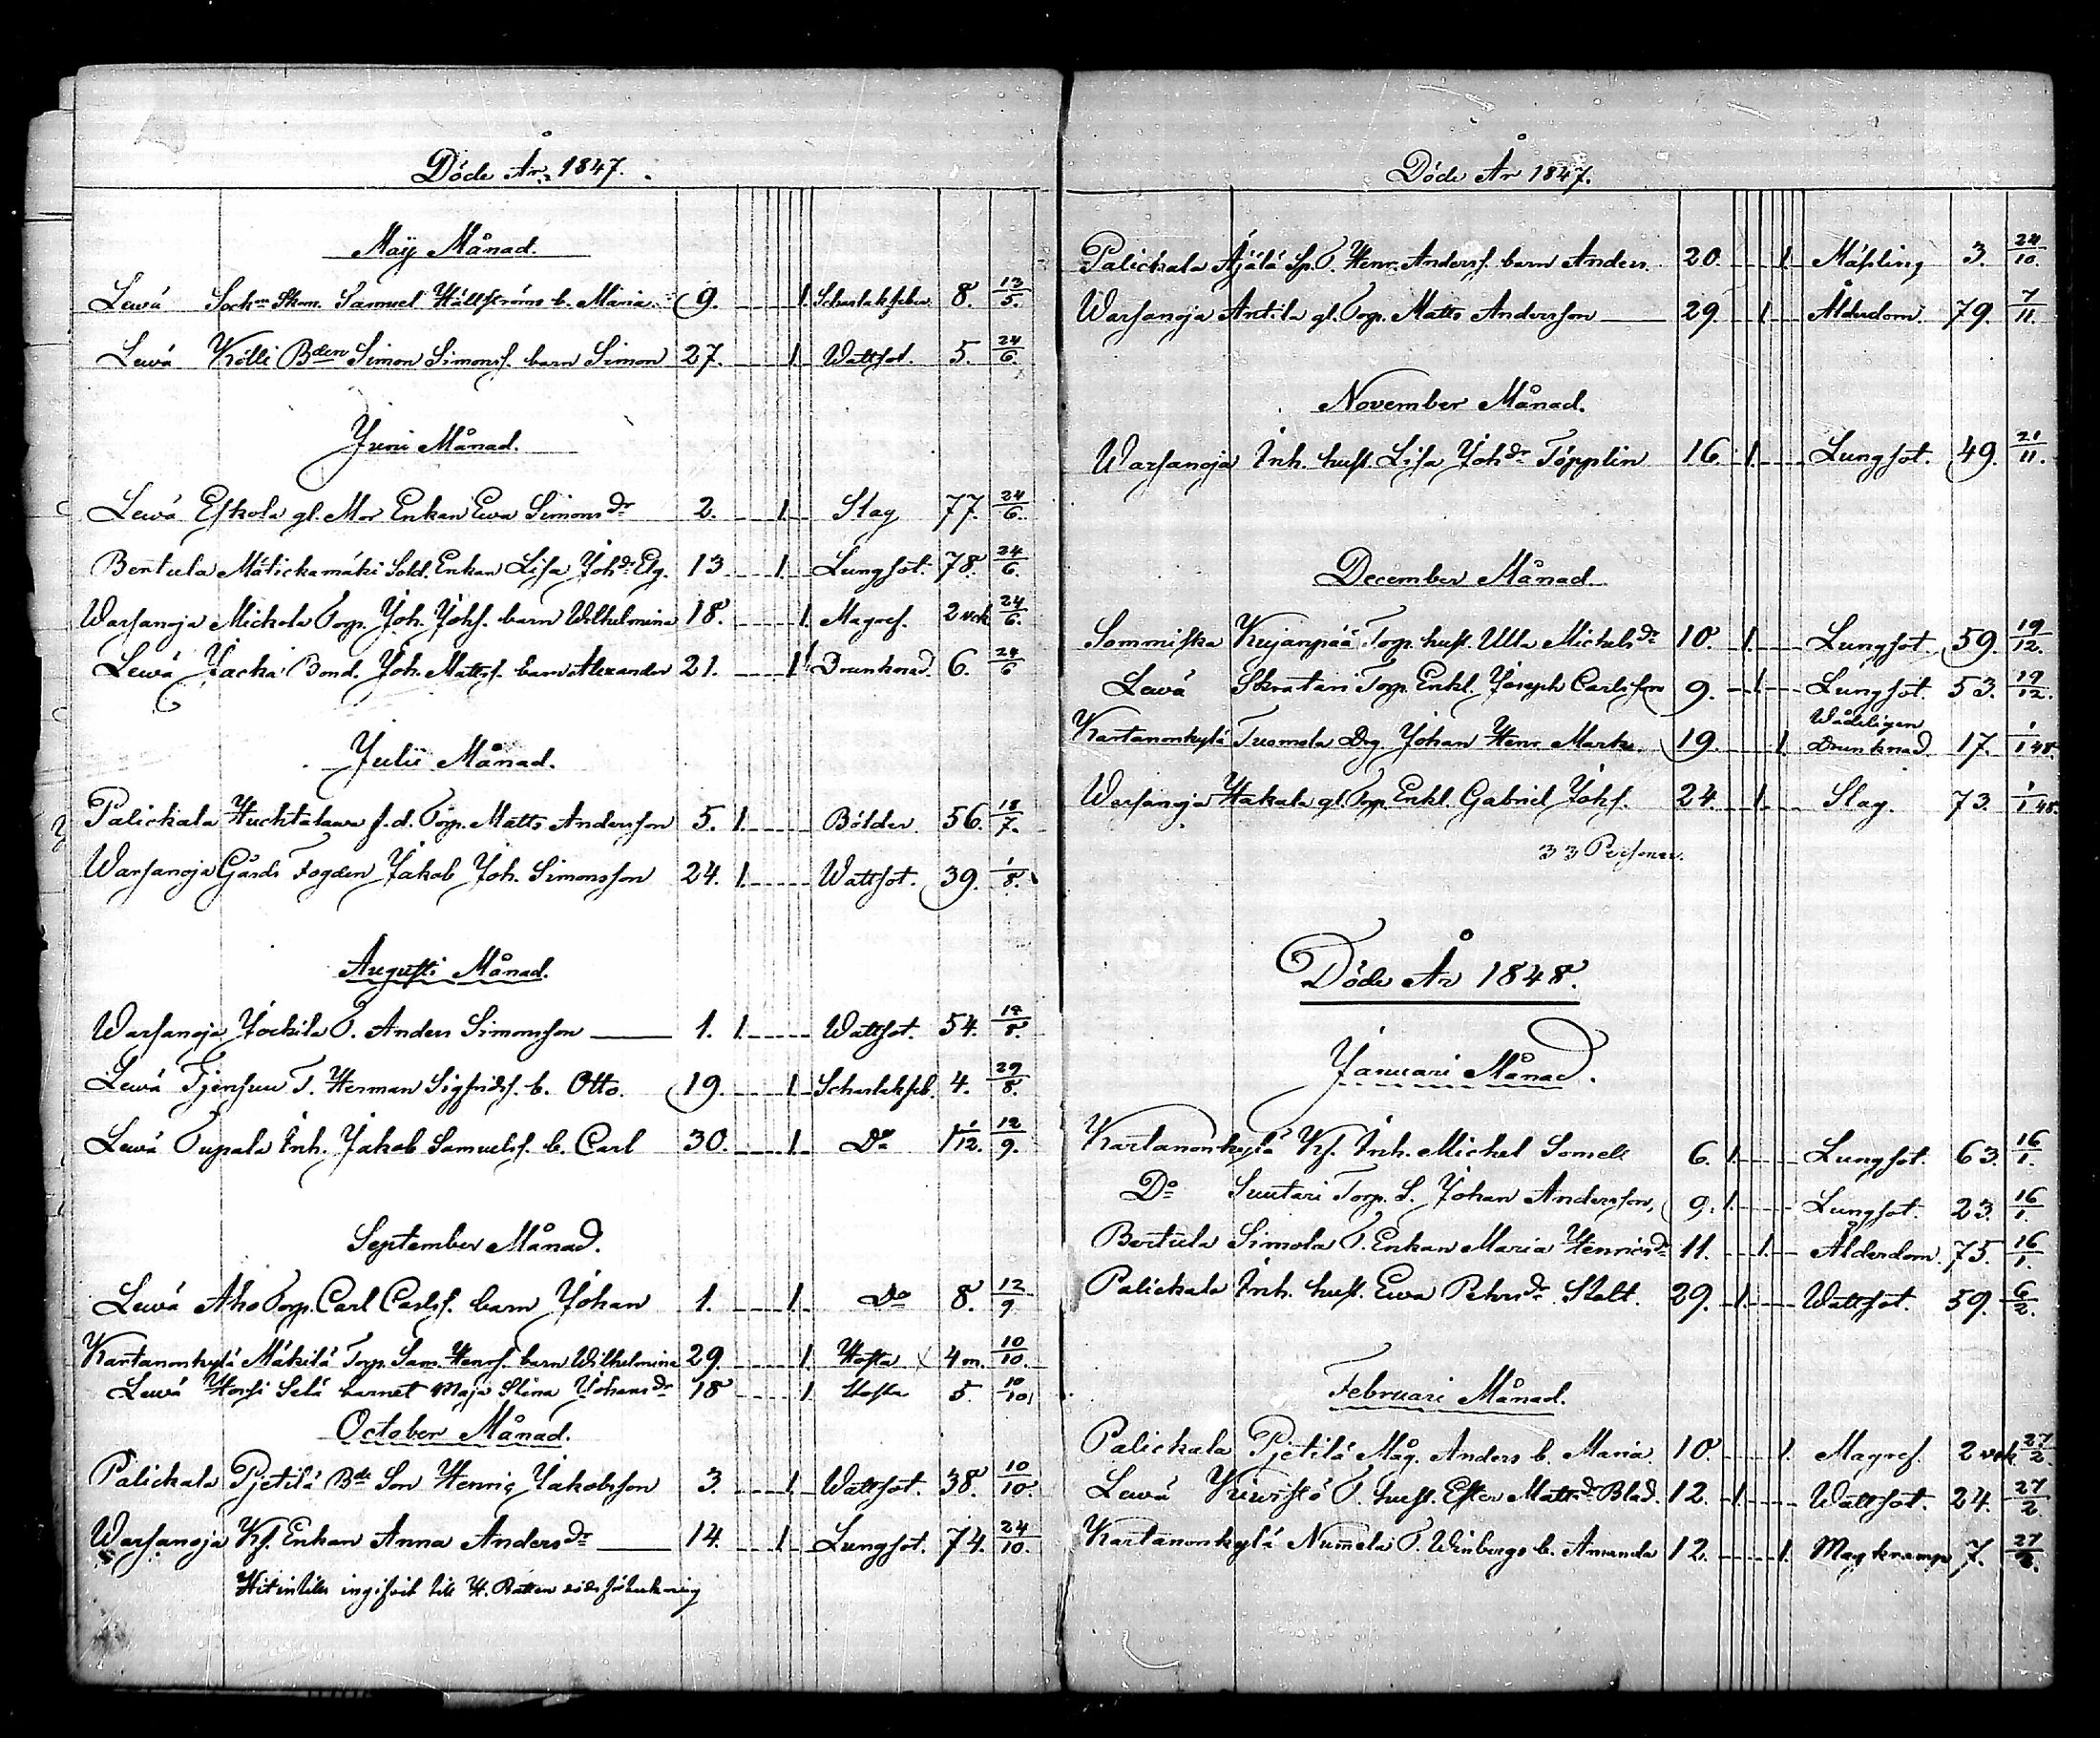 Döde År 1847.
Maij Månad.
Lewä Sockn Skom. Samuel Hällströms b. Maria 9. 1. Scharlakfeber 8. 13/5.
Lewä Kölli Bden Simon Simonss. barn Simon 27. 1. Wattsot. 5. 24/6.
Juni Månad.
Lewä Eskola gl. Mor Enkan Ewa Simonsdr 2. 1. Slag 77. 24/6.
Bertula Mätickamäki Sold. Enkan Lisa Johdr Elg. 13. 1. Lungsot. 78. 24/6.
Warsanoja Mickola Torp. Joh. Johs. barn Wilhelmina 18. 1. Magref. 2 vck 24/6.
Lewä Jacka Bond. Joh. Mattss. barn Alexander 21. 1. Drunknad. 6. 24/6
Julii Månad.
Palickala Huchtalawa f.d. Torp. Matts Andersson 5. 1. Bölder. 56. 18/7.
Warsanoja Gårds Fogden Jakob Joh. Simonsson 24. 1. Wattsot. 39. 1/8.
Augusti Månad.
Warsanoja Jockila T. Anders Simonsson 1. 1. Wattsot. 54. /8.
Lewä Tjensuu T. Herman Sigfridss. b. Otto. 19. 1. Scharlakfeb. 4. 29/8.
Lewä Tupala Inh. Jakob Samuelss. b. Carl 30. 1. Do 1 1/12. 12/9.
September Månad.
Lewä Aho Torp. Carl Carlss. barn Johan 1. 1. Do 8. 12/9.
Kartanonkylä Mäkilä Torp. Sam. Henrs. barn Wilhelmina 29. 1. Hosta 4 m. 10/10.
Lewä Horsi Selä barnet Maja Stina Johansdr 18 1. Hosta 5. 10/10
October Månad.
Palickala Pjetilä Bde Son Henric Jakobsson 3. 1. Wattsot. 38. 10/10.
Warsanoja Kf. Enkan Anna Andersdr 14. 1. Lungsot. 74. 24/10.
Hitintills ingifvit till H. Ratten
Döde År 1847.
Palickala Äjälä Sp. T. Henr. Anderss. barn Anders. 20. 1. Mässling 3. 24/10.
Warsanoja Antila gl. Torp. Matts Andersson 29. 1. Ålderdom. 79. 7/11.
November Månad.
Warsanoja Inh. hust. Lisa Johdr Töpplin 16. 1. Lungsot. 49. 21/11.
December Månad
Sommiska Kujanpää Torp. hust. Ulla Michelsdr 10. 1. Lungsot. 59. 19/12.
Lewä Skratari Torp. Enkl. Joseph Carlsson 9. 1. Lungsot. 53. 19/12.
Kartanonkylä Tuomola Drg. Johan Henr. Marks. 19. 1. Wådeligen Drunknad 17. 1/1 48.
Warsanoja Hakala gl. Torp. Enkl. Gabriel Johs. 24. 1. Slag. 73. 1/1 48.
33 Personer.
Döde År 1848.
Januari Månad.
Kartanonkylä Kf. Inh. Michel Somell 6. 1. Lungsot. 63. 16/1.
Do Suutari Torp. S. Johan Andersson, 9. 1. Lungsot. 23. 16/1.
Bertula Simola T. Enkan Maria Henricsdr 11. 1. Ålderdom. 75. 16/1.
Palickala Inh. hust. Ewa Pehrsdr Stolt. 29. 1. Wattsot. 59. 6/2.
Februari Månad.
Palickala Pjetilä Måg. Anders b. Maria. 10. 1. Magref. 2 vck 27/2.
Lewä T. hust. Ester Mattsdr Blad. 12. 1. Wattsot. 24. 27/2
Kartanonkylä Nummela T. Winbergs b. Amanda 12. 1. Magkramp 7. 27/2.